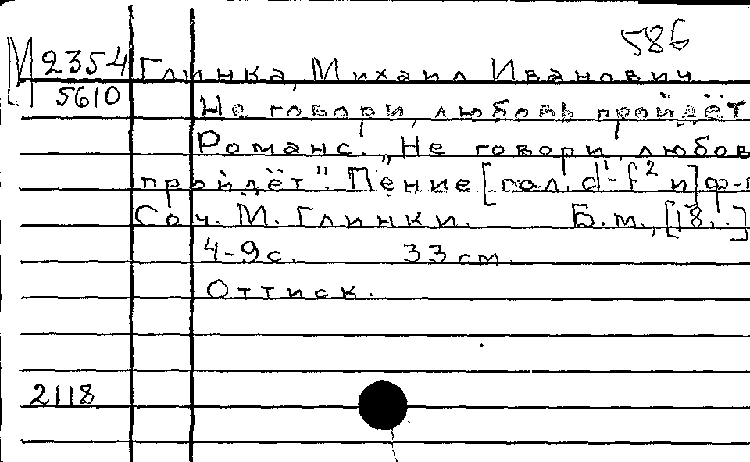 586
М 2354 Глинка, Михаил Иванович
5610
Не говори, любовь пройдёт
Романс. „Не говори, любов
пройдёт". Пение [гол. d¹-f² и] ф-
Соч. М. Глинки. Б.м., [18..]
4-9 с. 33 см.
Оттиск.
2118